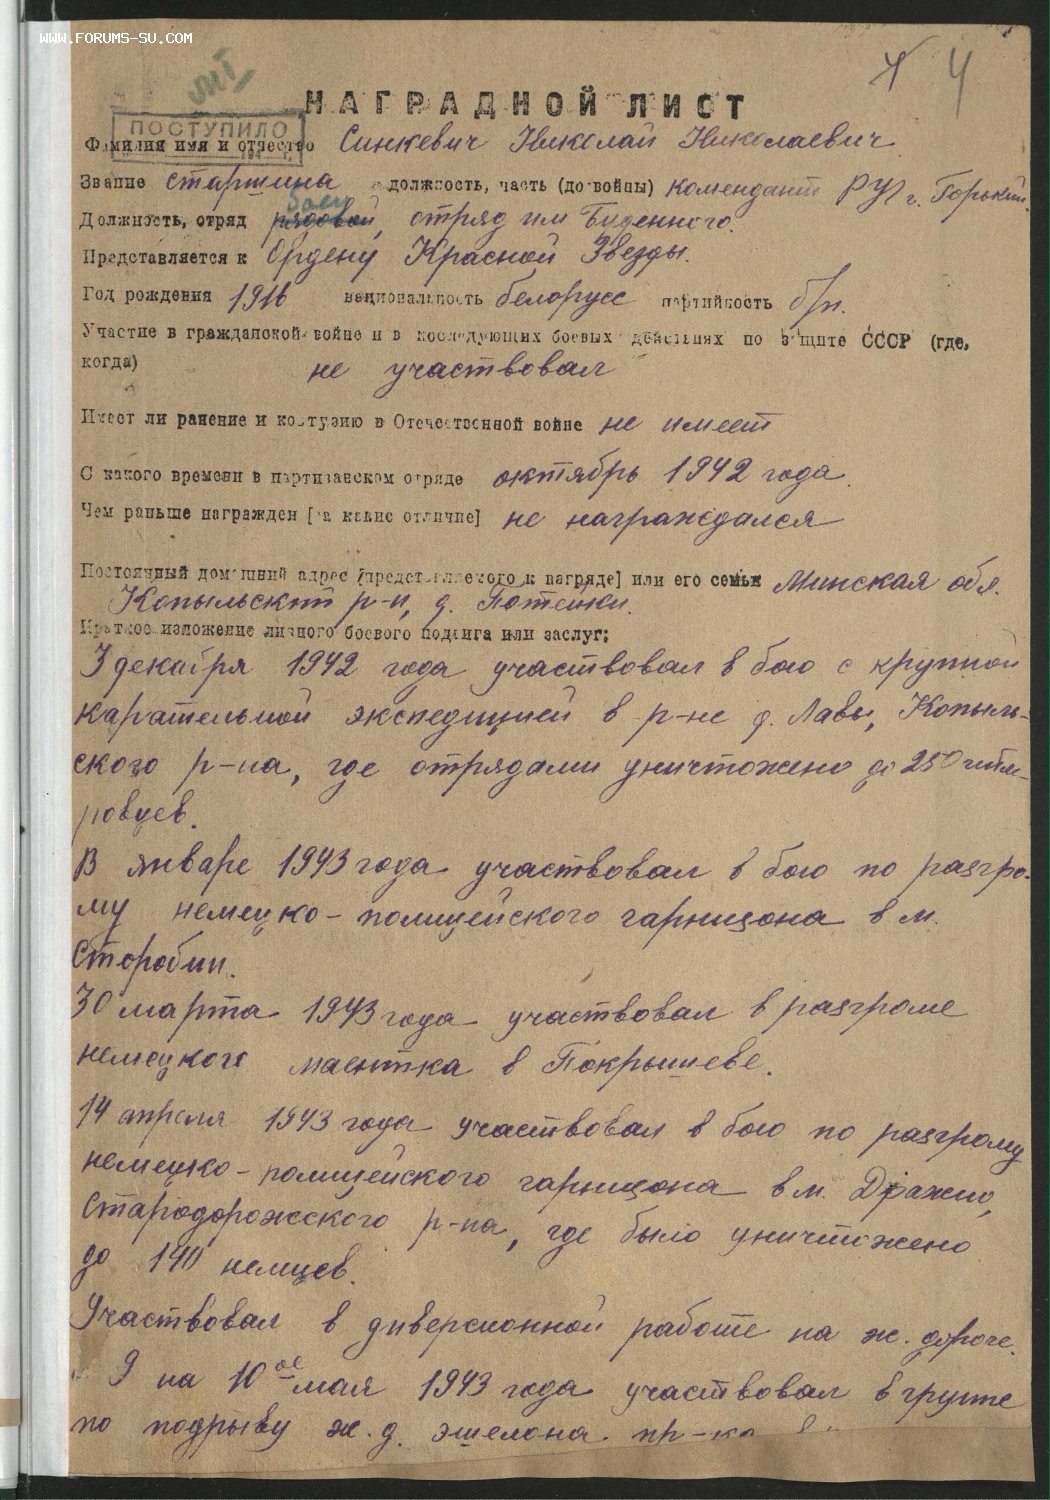 WWW.FORUMS-SU.COM
4
НАГРАДНОЙ ЛИСТ
ПОСТУПИЛО
Фамилия имя и отчество Синкевич Николай Николаевич
Звание старшина должность, часть (до войны) комендант РУ г. Горький.
боец
Должность, отряд рядовой, отряд им Буденного.
Представляется к Ордену Красной Звезды.
Год рождения 1916 национальность белорусс партийность б/п.
Участие в гражданской войне и в последующих боевых действиях по защите СССР (где,
когда) не участвовал
Имеет ли ранение и контузию в Отечественной войне не имеет
С какого времени в партизанском отряде октябрь 1942 года.
Чем раньше награжден [за какие отличие] не награждался
Постоянный домашний адрес [представляемого к награде] или его семьи Минская обл.
Копыльский р-н, д. Потейки.
Краткое изложение личного боевого подвига или заслуг:
3 декабря 1942 года участвовал в бою с крупной
карательной экспедицией в р-не д. Лавы, Копыль-
ского р-на, где отрядами уничтожено до 250 гитле-
ровцев.
В январе 1943 года участвовал в бою по разгро-
му немецко-полицейского гарнизона в м.
Старобин.
30 марта 1943 года участвовал в разгроме
немецкого маентка в Покрышеве.
14 апреля 1943 года участвовал в бою по разгрому
немецко-полицейского гарнизона в м. Дражно,
Стародорожского р-на, где было уничтожено
до 140 немцев.
Участвовал в диверсионной работе на ж. дороге.
9 на 10ое мая 1943 года участвовал в группе
по подрыву ж.д. эшелона пр-ка